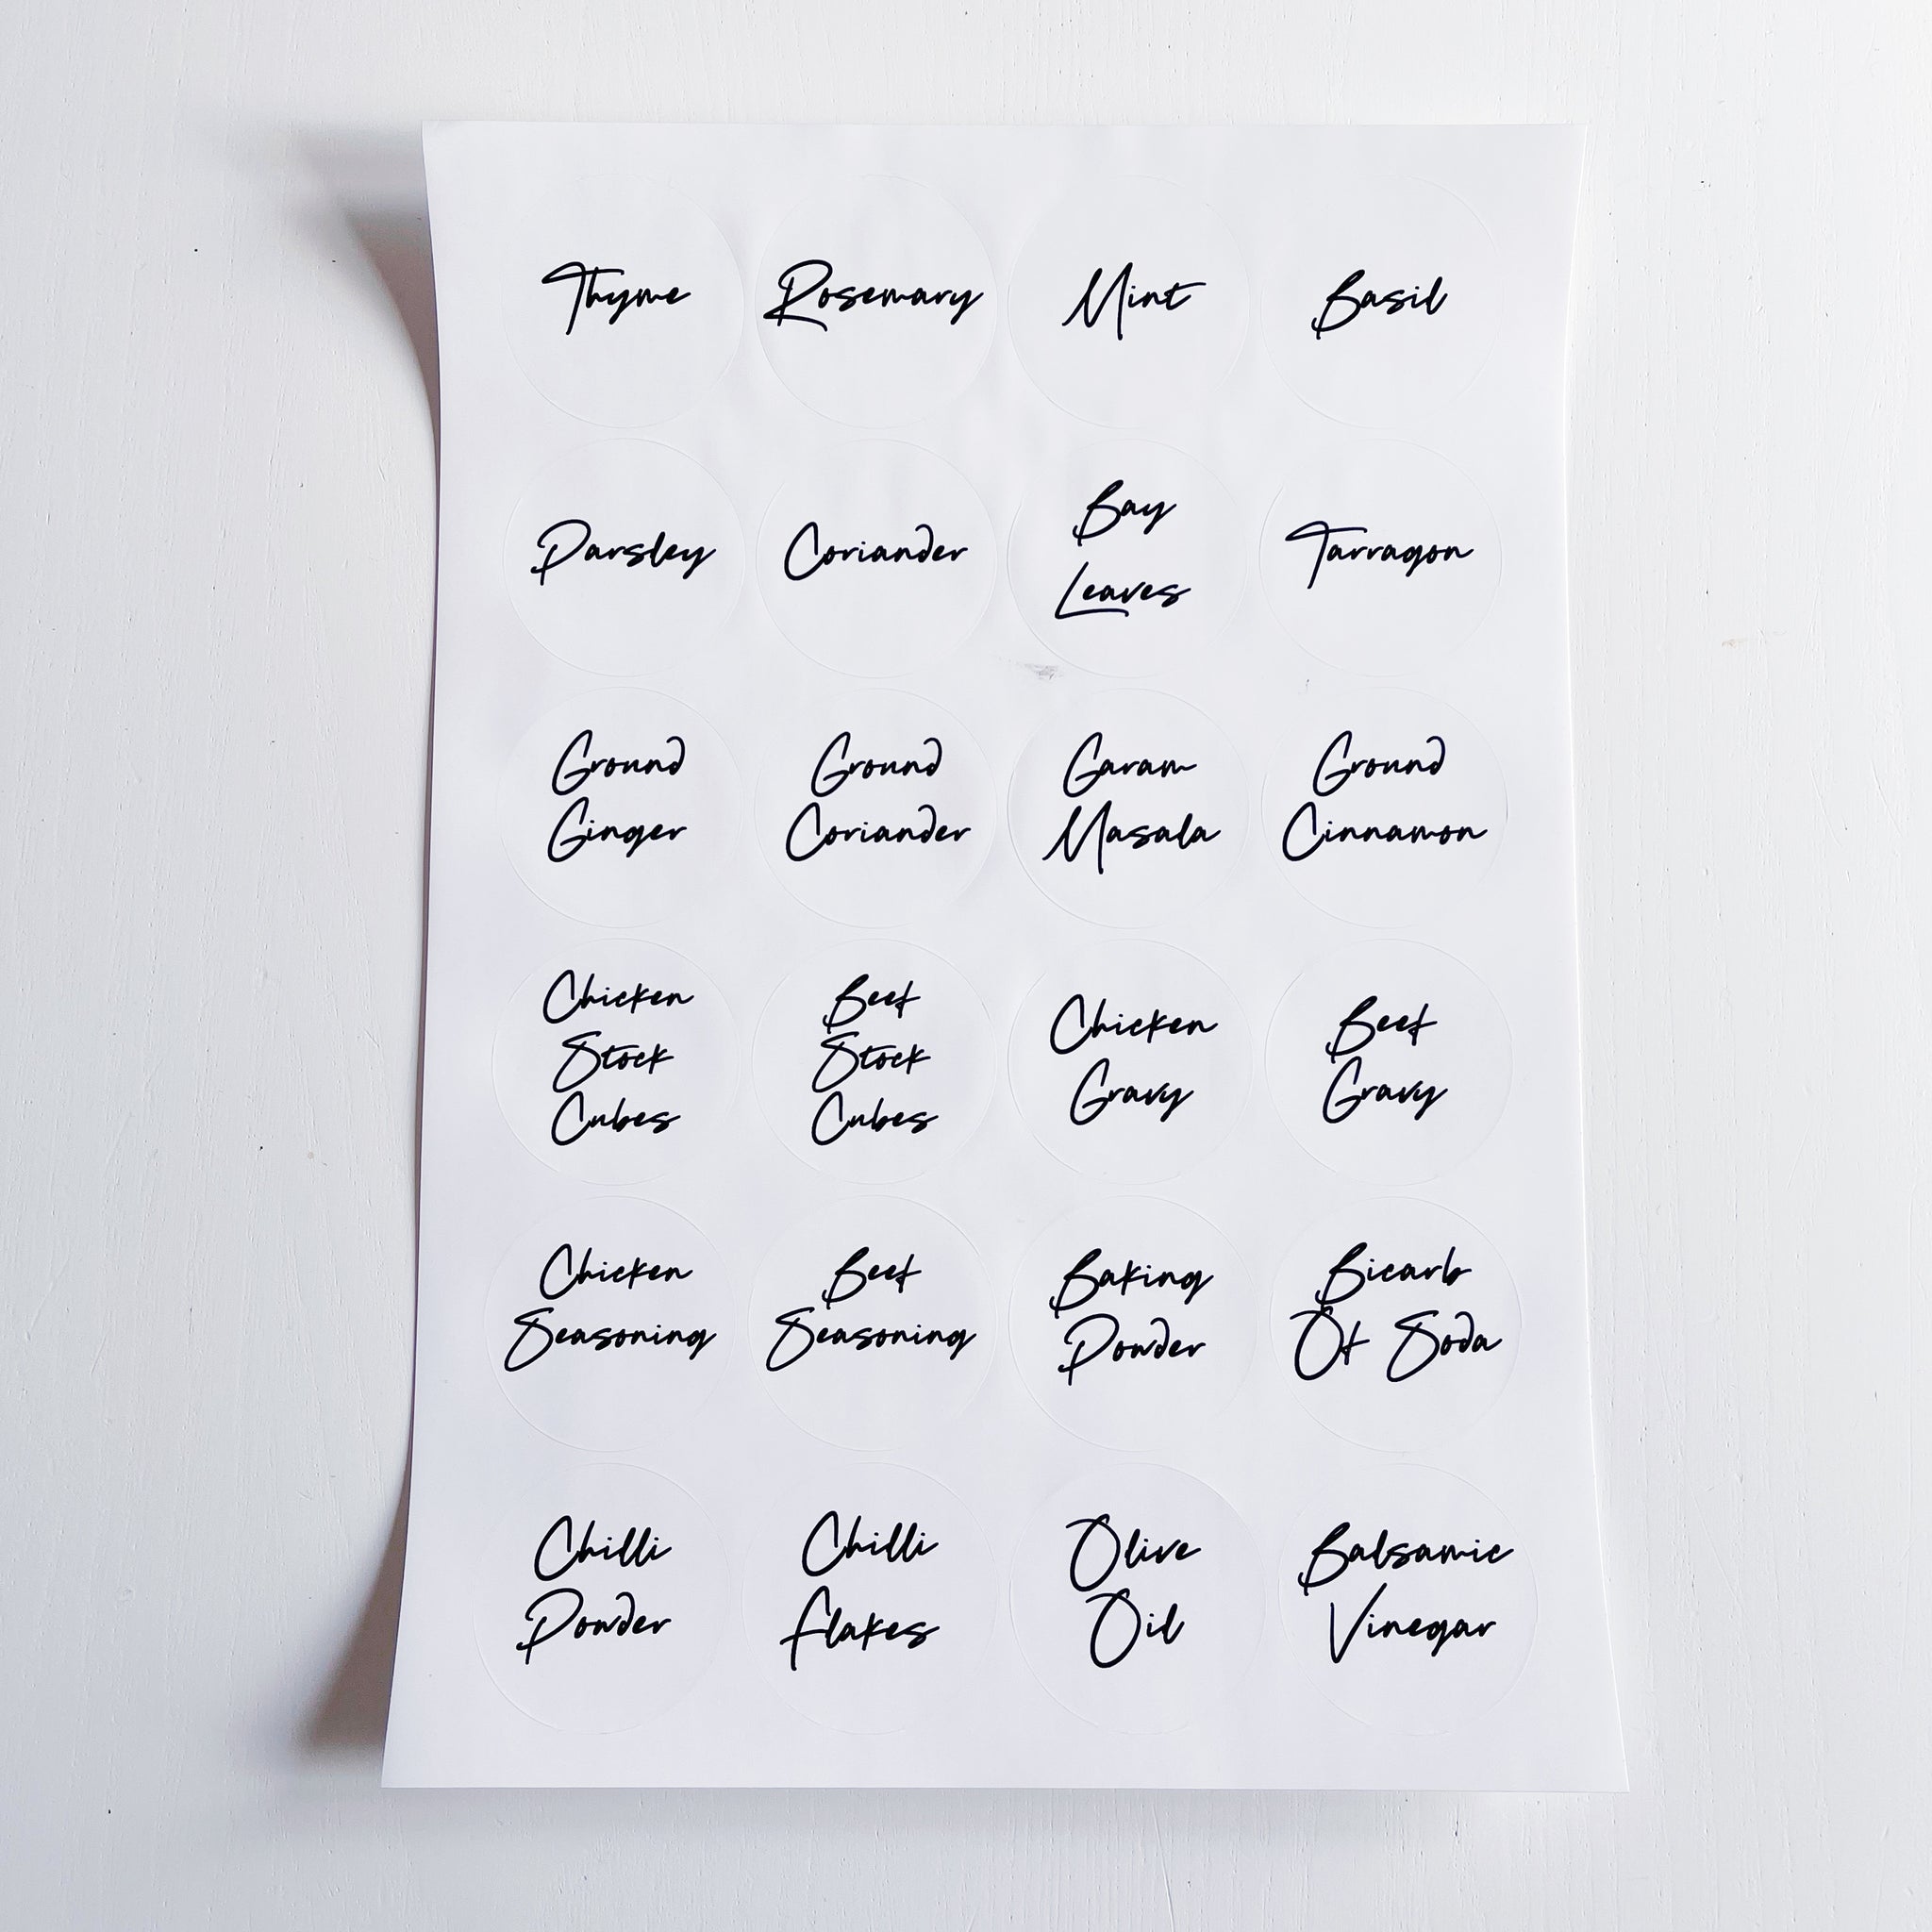 Thyme
Rosemary
Mint
Basil
Parsley
Coriander
Bay
Leaves
Tarragon
Ground
Ginger
Ground
Coriander
Garam
Masala
Ground
Cinnamon
Chicken
Stock
Cubes
Beef
Stock
Cubes
Chicken
Gravy
Beef
Gravy
Chicken
Seasoning
Beef
Seasoning
Baking
Powder
Bicarb
Of Soda
Chilli
Powder
Chilli
Flakes
Olive
Oil
Balsamic
Vinegar